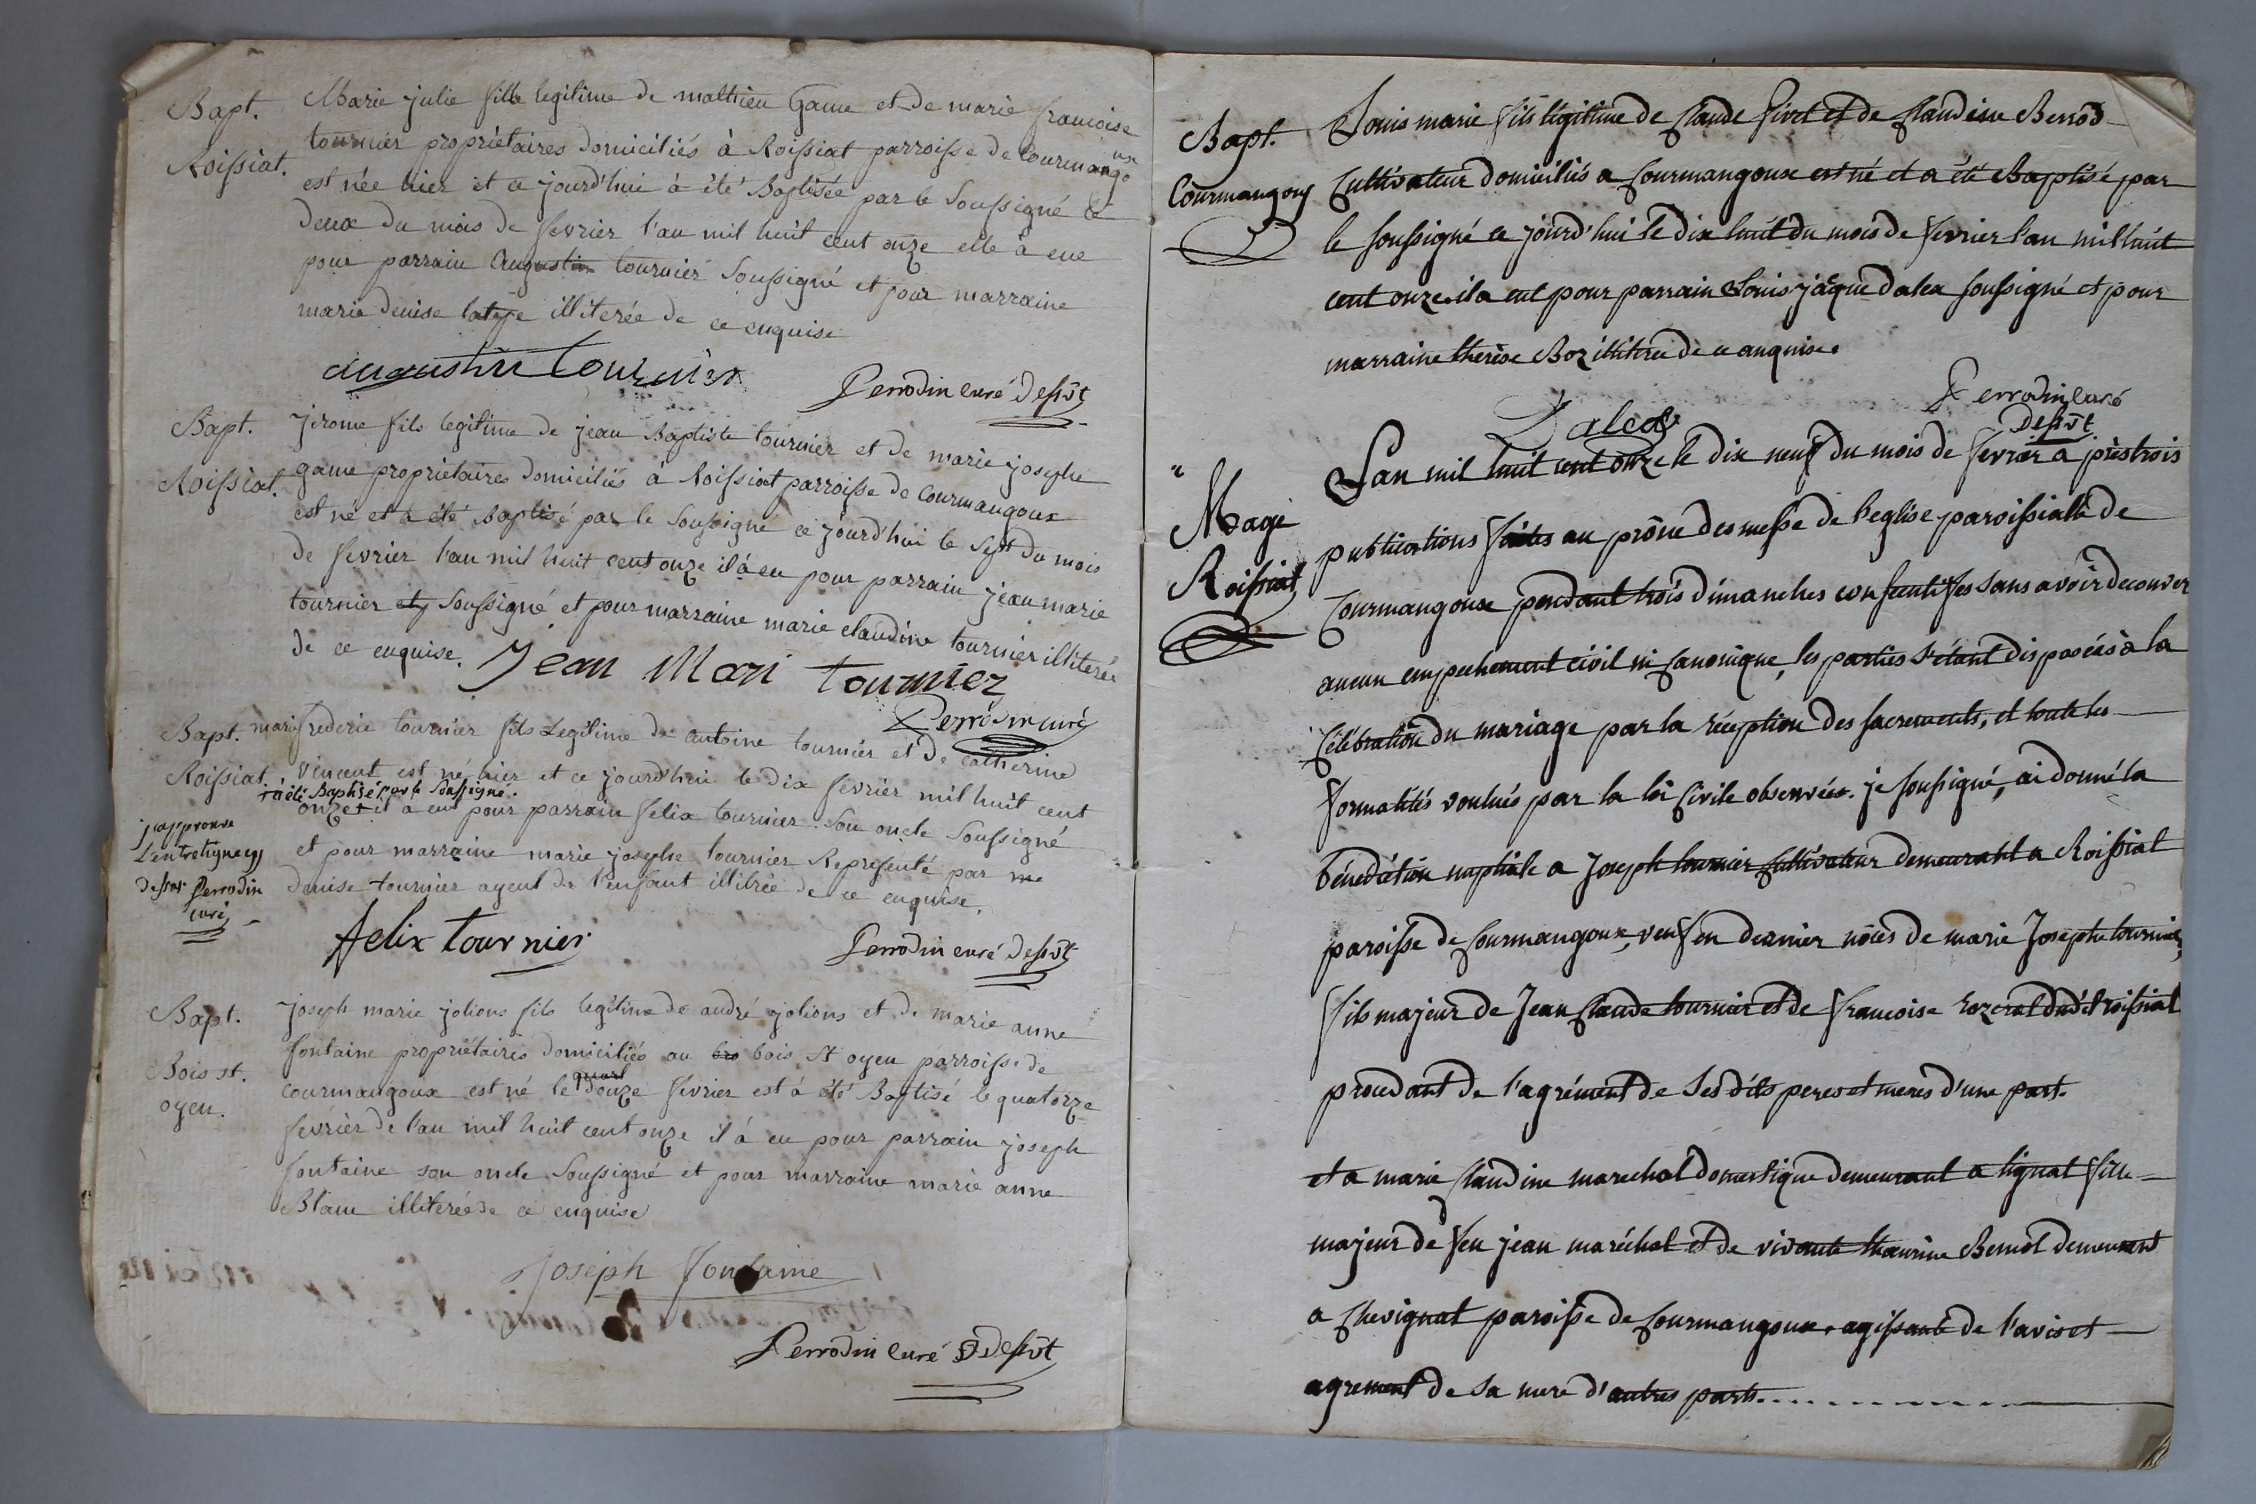 Bapt.
Roissiat.
Marie julie fille legitime de mathieu Game et de marie francoise
tournier propriètaires domiciliés à Roissiat parroisse de Courmangoux
est née hier et ce jourd'hui à été Baptisée par le Soussigné le
deux du mois de fevrier l'an mil huit cent onze elle à eue
pour parrain Augustin tournier Soussigné et pour marraine
marie denise illiterée de ce enquise
augustin tournier
Perrodin curé dessvt
Bapt.
Roissiat.
jerome fils legitime de jean Baptiste tournier et de marie josephe
game propriètaires domiciliés à Roissiat parroisse de Courmangoux
est né et à été Baptisé par le Soussigné ce jourd'hui le Sept du mois
de fevrier l'an mil huit cent onze il à eu pour parrain jean marie
tournier Soussigné et pour marraine marie claudine tournier illiterée
de ce enquise.
Jean Mari tournier
Perrodin curé
Bapt.
Roissiat.
marie frederic tournier fils Legitime de antoine tournier et de catherine
vincent est né hier et ce jourd'hui le dix fevrier mil huit cent
+ à été Baptisé par le Soussigné.
onze + il a eu pour parrain felix tournier son oncle Soussigné
et pour marraine marie josephe tournier Representé par me
denise tournier ayeul de l'enfant illitrée de ce enquise.
j'approuve
L'entreligne cy
dessus Perrodin
curé
felix tournier
Perrodin curé dessvt
Bapt.
Bois st.
oyen.
joseph marie jolions fils legitime de andré jolions et de marie anne
fontaine propriètaires domiciliés au bois St oyen parroisse de
courmangoux est né le douze fevrier est à été Baptisé le quatorze
fevrièr de l'an mil huit cent onze il à eu pour parrain joseph
fontaine son oncle Soussigné et pour marraine marie anne
Blanc illiterée de ce enquise
Joseph Fontaine
Perrodin curé dessvt
Bapt.
Courmangoux
Louis marie fils légitime de Claude Pivet et de Claudine Berrod
Cultivateur domiciliés a Courmangoux est né et a été Baptisé par
le soussigné ce jourd'hui le dix huit du mois de fevrier l'an mil huit
cent onze. il a eut pour parrain Louis jâque dalex soussigné et pour
marraine therèse Boz illiterée de ce enquise.
Dalex
Perrodin Curé
dessvt
Mage
Roissiat
L'an mil huit cent onze le dix neuf du mois de fevrier a près trois
publications faites au prône des messe de l'eglise paroissialle de
Courmangoux pendant trois dimanches consecutifes sans avoir decouver
aucun empechement civil ni Canonique, les parties s'étant disposées à la
Célébration du mariage par la réception des sacrements, et toute les
formalités voulués par la loi Civile observées. je soussigné, ai donné la
bénediction nuptiale a Joseph tournier Cultivateur demeurant a Roissiat
paroisse de Courmangoux, veuf en dernier nôces de marie Josephe tournier,
fils majeur de Jean Claude tournier et de francoise Rozerat dudit roissiat
procedant de l'agrément de ses dits peres et meres d'une part.
et a marie Claudine marechal domestique demeurant a lignat fille
majeur de feu jean maréchal et de vivante Benoit demeurant
a Chevignat paroisse de Courmangoux. agissante de l'avis et
agrement de sa mere d'autres parts.